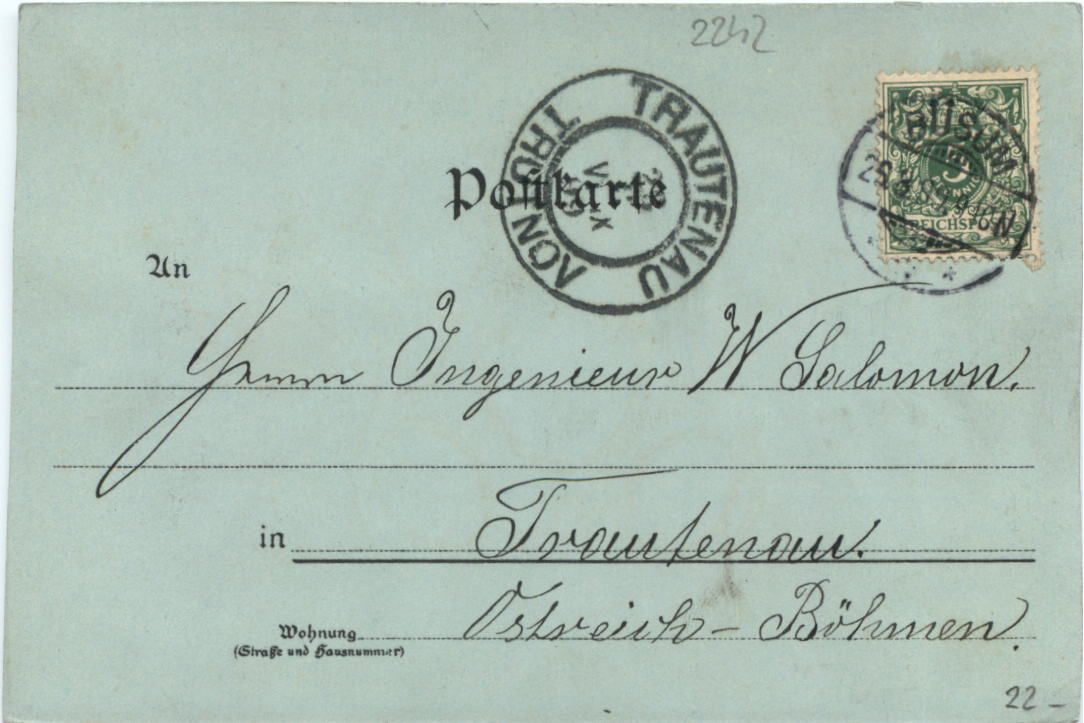 2242
BÜSUM
5
PFENNIG
REICHSPOST
TRAUTENAU
TRUTNOV
Postkarte
An
Herrn Ingenieur W Salomon.
in Trautenau.
Wohnung Östreich - Böhmen.
(Straße und Hausnummer)
22 -